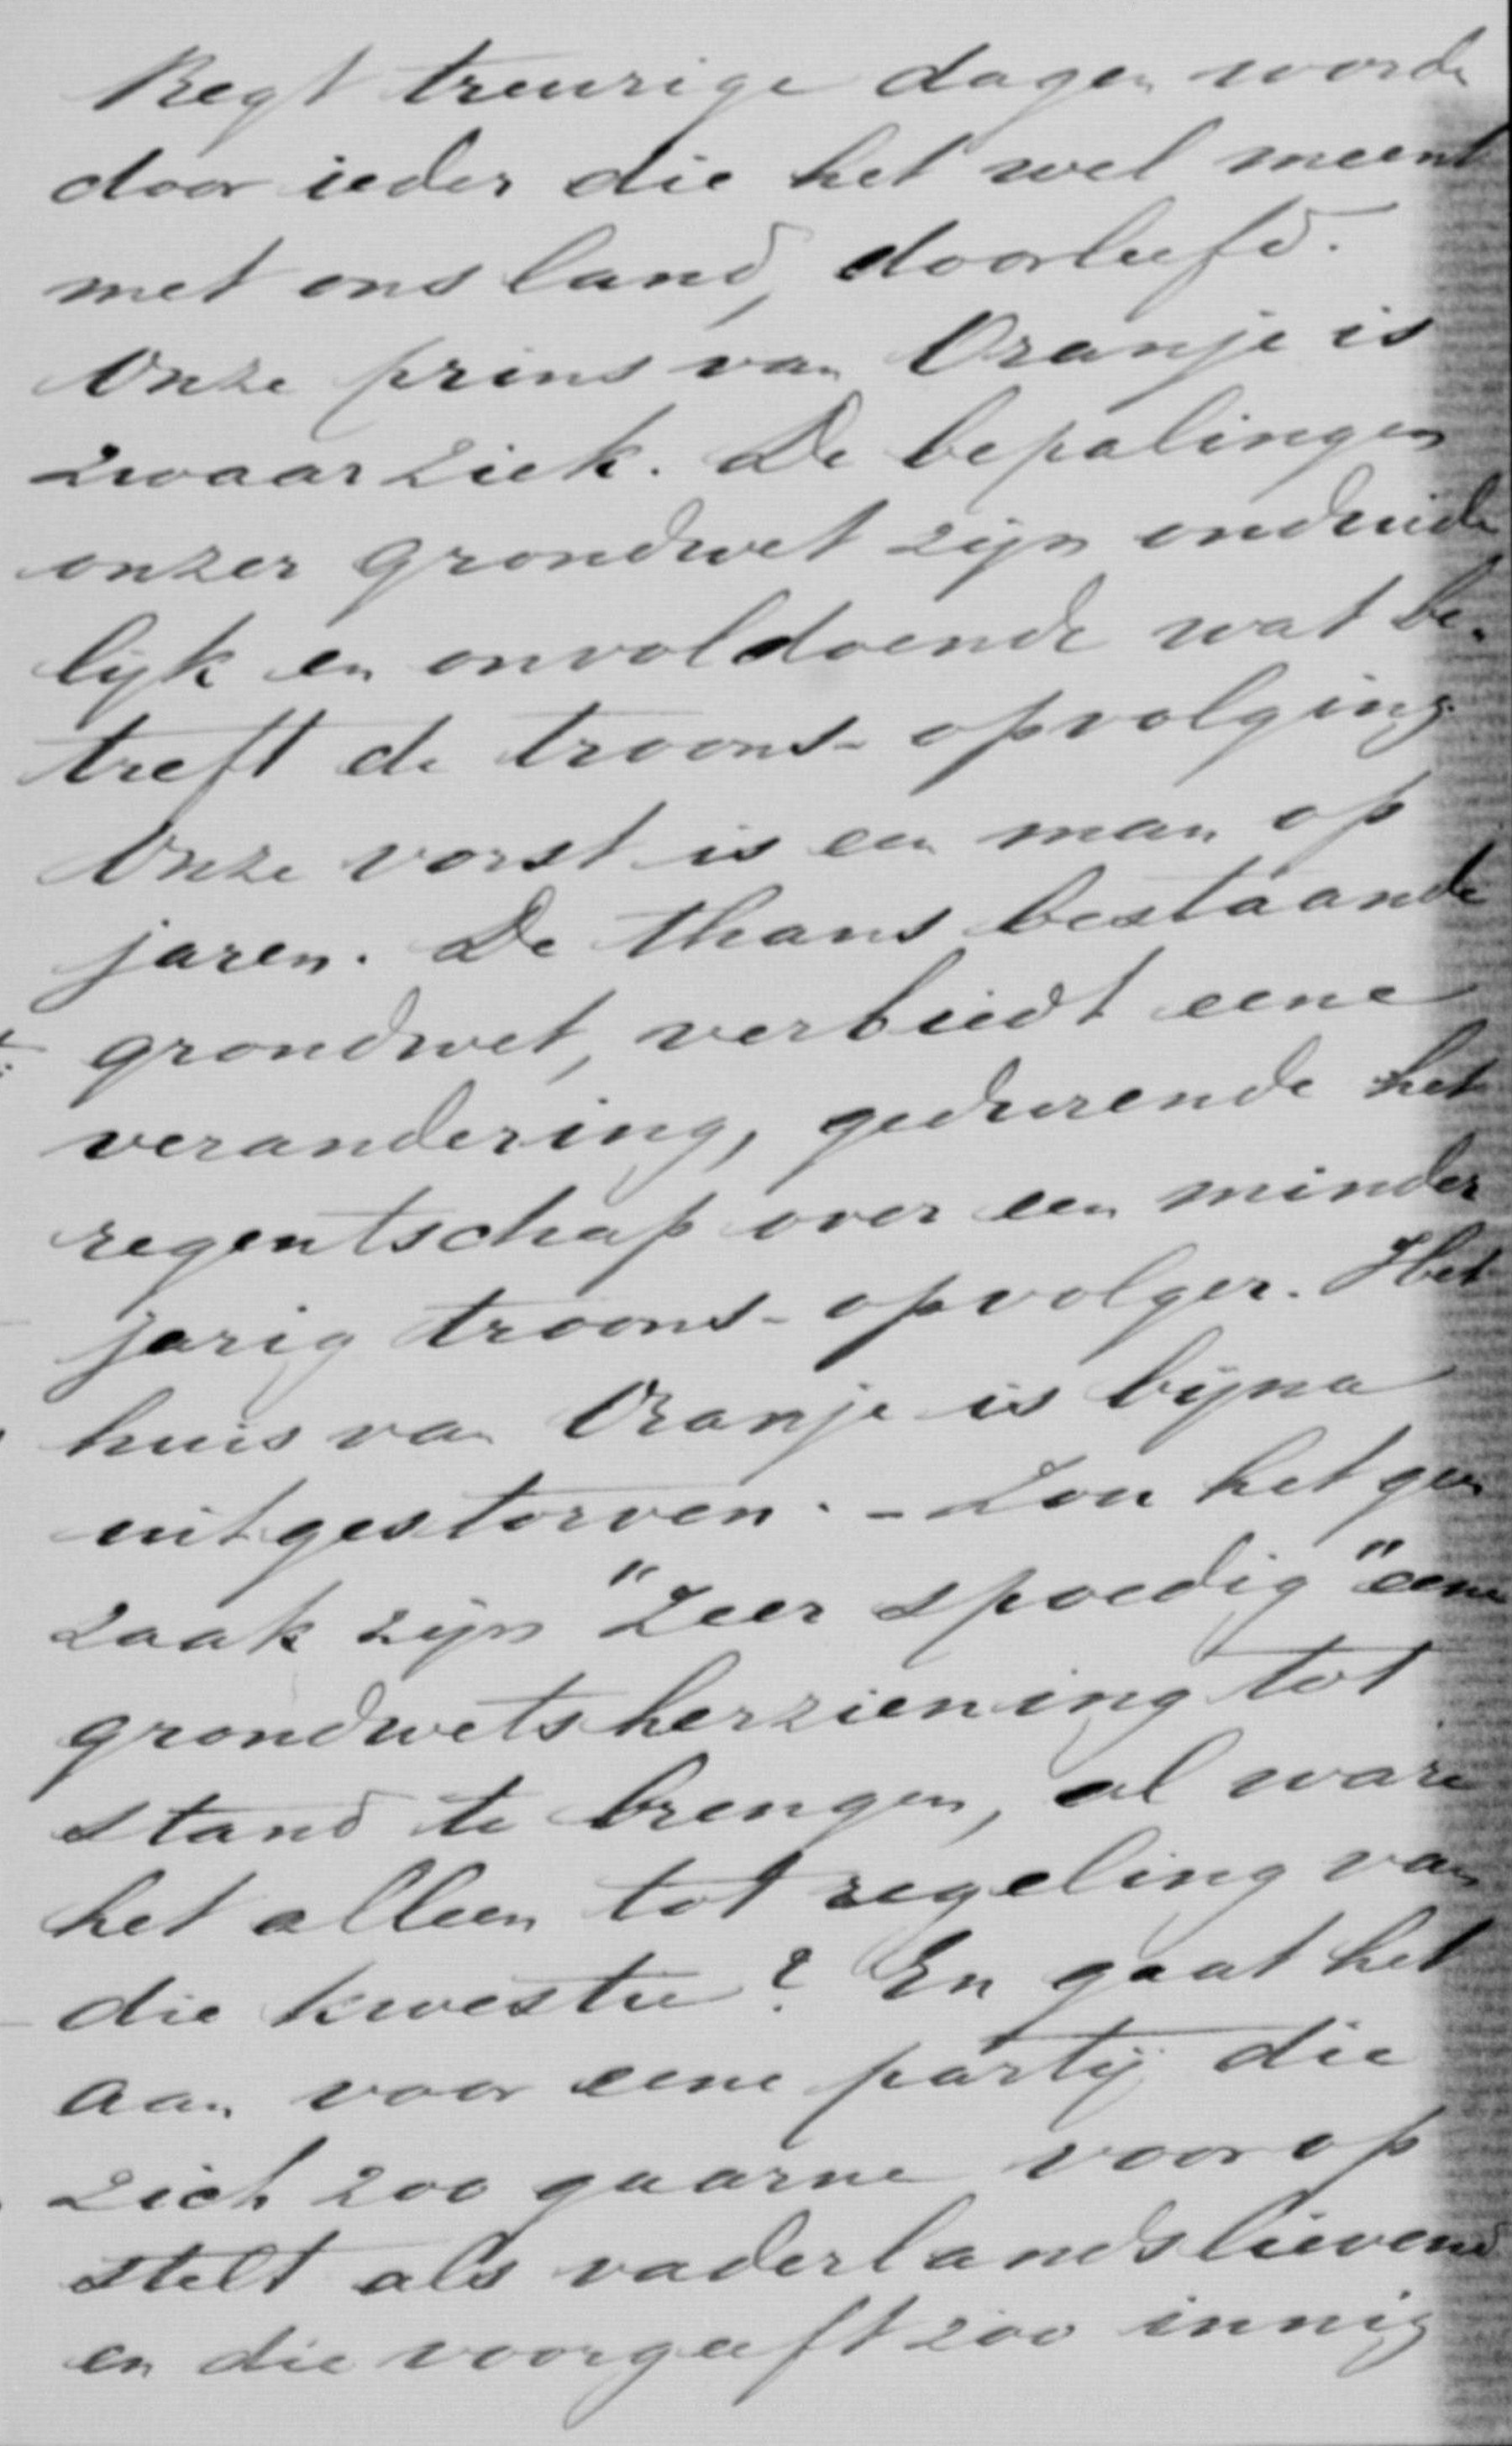 Regt treurige dagen worde
door ieder die het wel meent
met ons land, doorleefd.
Onze prins van Oranje is
zwaar ziek. De bepalingen
onzer grondwet zijn onduide
lijk en onvoldoende wat be-
treft de troons-opvolging.
Onze vorst is een man op
jaren. De thans bestaande
grondwet, verbiedt eene
verandering, gedurende het
regentschap over een minder
jarig troons-opvolger. Het
huis van Oranje is bijna
uitgestorven. - Zou het geen
zaak zijn "zeer spoedig" eene
grondwetsherziening tot
stand te brengen, al ware
het alleen tot regeling van
die kwestie? En gaat het
aan voor eene partij die
zich zoo gaarne voorop
stelt als vaderlandslievend
en die voorgeeft zoo innig